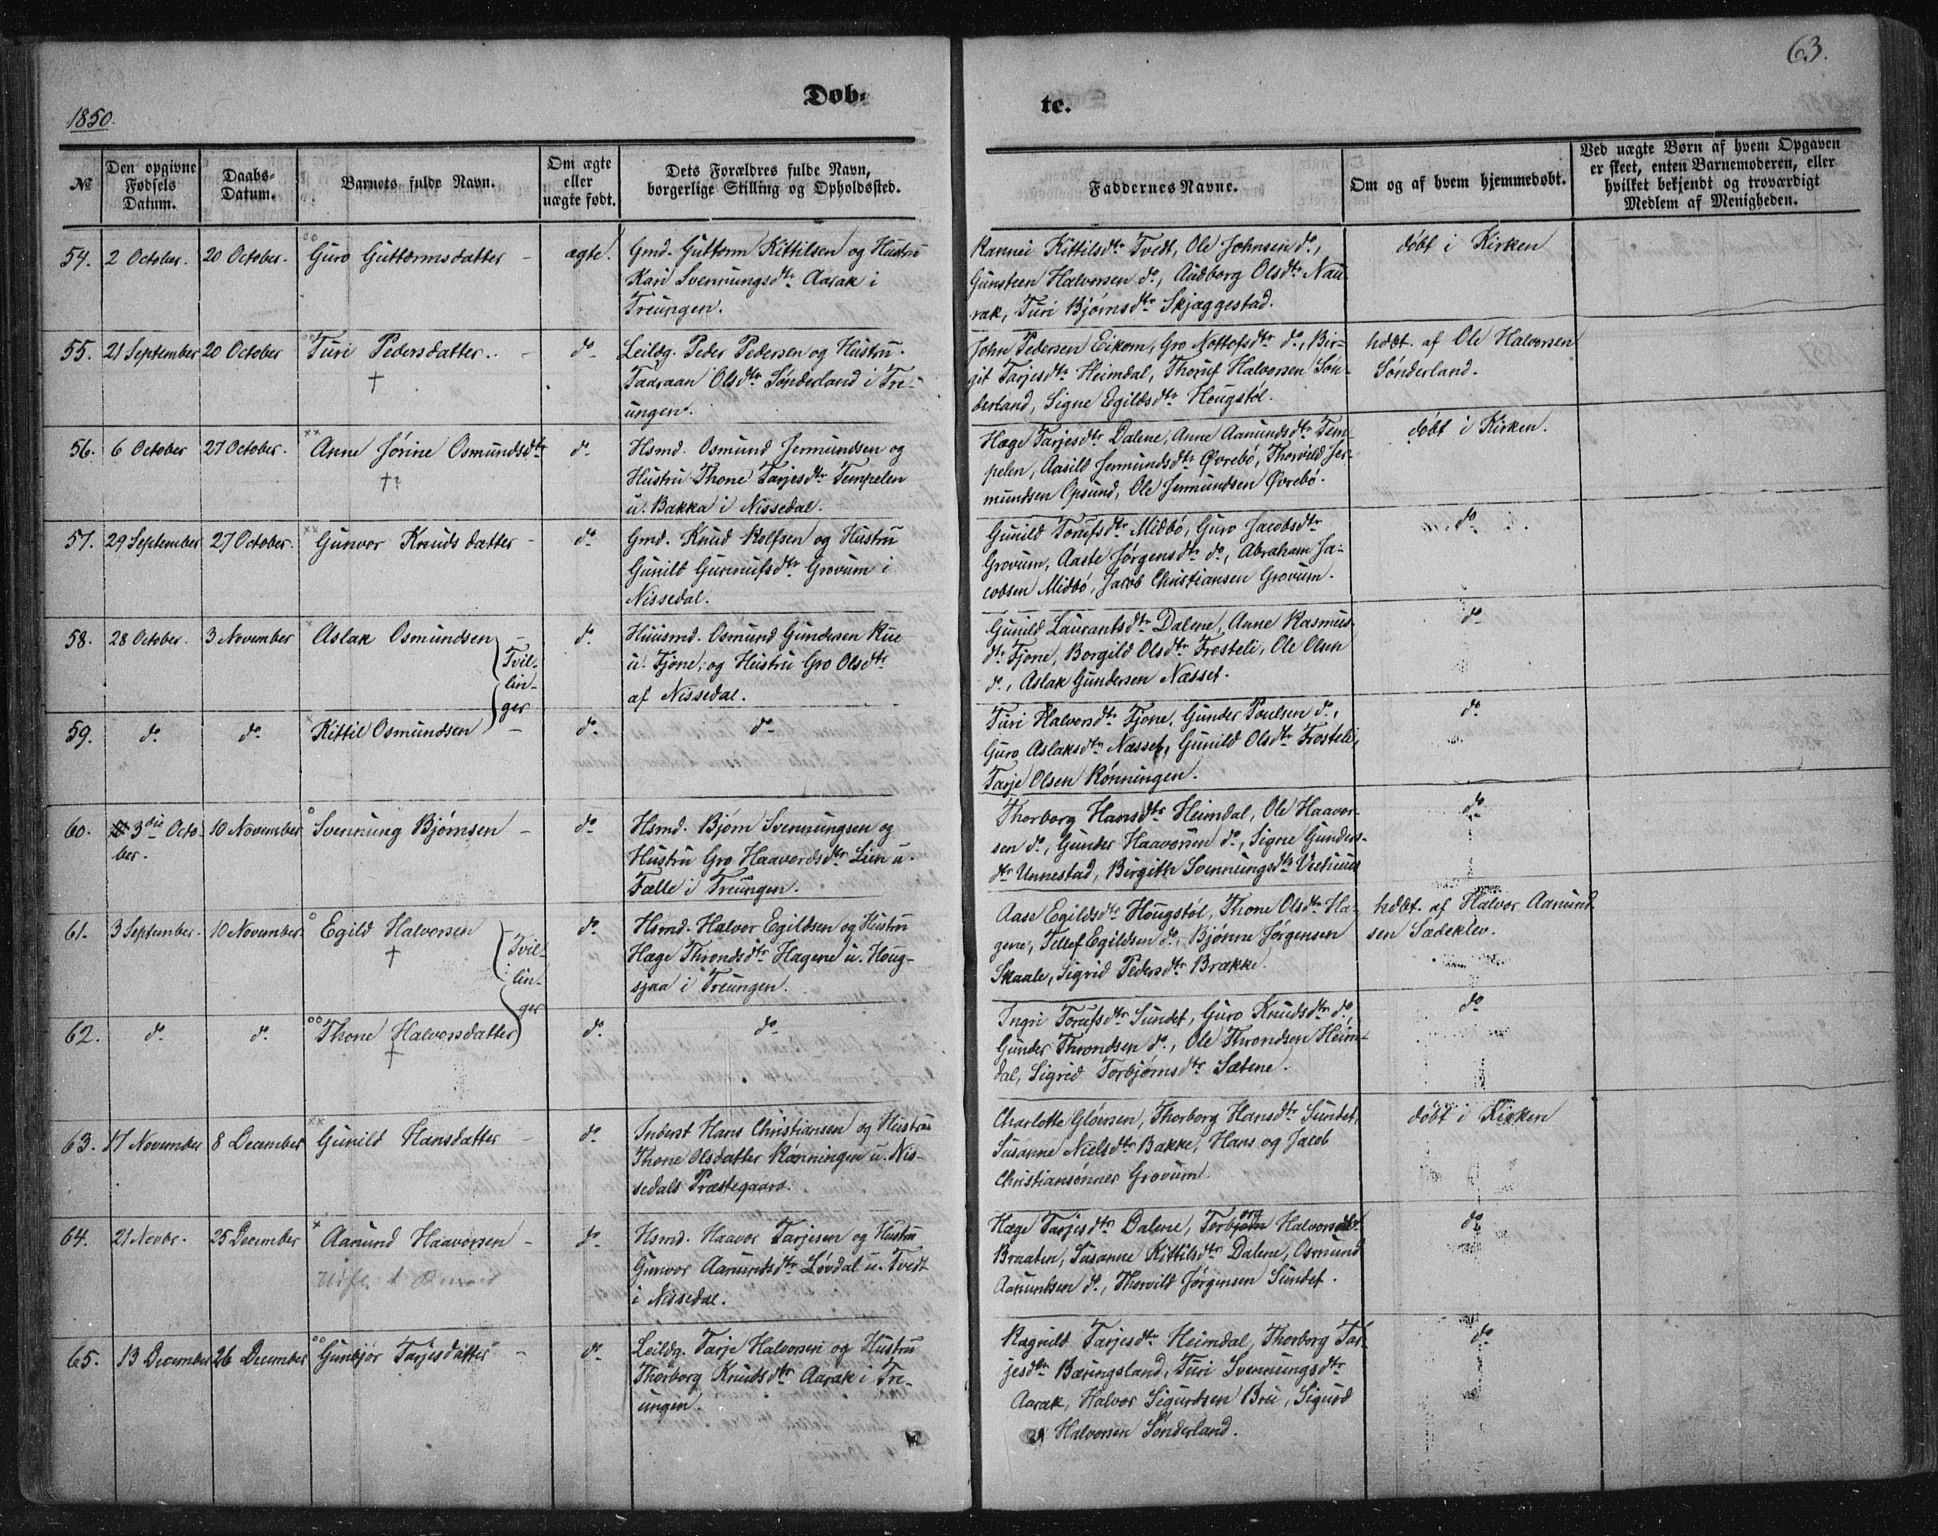 63.
Døb-
te.
1850.
№
Den opgivne
Fødsels
Datum.
Daabs-
Datum.
Barnets fulde Navn.
Om ægte
eller
uægte født.
Dets Forældres fulde Navn,
borgerlige Stilling og Opholdssted.
Faddernes Navne.
Om og af hvem hjemmedøbt.
Ved uægte Børn af hvem Opgaven
er skeet, enten Barnemoderen, eller
hvilket bekjendt og troværdigt
Medlem af Menigheden.
54. 2 October. 20 October. Guro Guttormsdatter - ægte.
Gmd. Guttorm Kittilsen og Hustru
Kari Svennungsdtr Aarak i
Treungen.
Rannei Kittilsdtr Tvedt, Ole Johnsen do,
Gunsteen Halvorsen do, Audborg Olsdtr Nau-
rak, Turi Bjørnsdtr Skjæggestad.
døbt i Kirken
55. 21 September 20 October Turi Pedersdatter. - do
†
Leildg. Peder Pedersen og Hustru
Taaraan Olsdtr Sønderland i Tre-
ungen.
John Pedersen Eikom, Gro Nottofsdtr do, Bir-
git Tarjesdtr Heimdal, Thoruf Halvorsen Søn-
derland, Signe Egildsdtr Hougstøl.
hdbt. af Ole Halvorsen
Sønderland.
56. 6 October 27 October. Anne Jørine Osmundsdtr do
†?
Hsmd. Osmund Jermundsen og
Hustru Thone Tarjesdtr Tempelen
u. Bakka i Nissedal.
Hæge Tarjesdtr Dalene, Anne Aanundsdtr Tem-
pelen, Aasild Jermundsdtr Øvrebø, Thorvild Jer-
mundsen Opsund, Ole Jermundsen Øvrebø.
døbt i Kirken.
57. 29 September 27 October. Gunvor Knudsdatter - do
Gmd. Knud Rolfsen og Hustru
Gunild Gunnufsdtr Grovum i
Nissedal.
Gunild Torufsdtr Midbø, Guro Jacobsdtr
Grovum, Aaste Jørgensdtr do, Abraham Ja-
cobsen Midbø, Jacob Christiansen Grovum.
do
58. 28 October. 3 November Aslak Osmundsen do
Tvil-
lin-
ger
Huusmd. Osmund Gundersen Rue
u. Fjone, og Hustru Gro Olsdtr
af Nissedal.
Gunild Laurantsdtr Dalene, Anne Rasmus-
dtr Fjone, Borgild Olsdtr Frosteli, Ole Olsen
do, Aslak Gundersen Næsset.
do
59. do do Kittil Osmundsen - do do
Turi Halvorsdtr Fjone, Gunder Poulsen do,
Guro Aslaksdtr Næsset, Gunild Olsdtr Frosteli,
Tarje Olsen Rønningen.
do
60. 3die Octo-
ber. 10 November Svennung Bjørnsen - do
Hsmd. Bjørn Svennungsen og
Hustru Gro Haavordsdtr Lien u.
Fælle i Treungen.
Thorborg Hansdtr Heimdal, Ole Haavor-
sen do, Gunder Haavorsen do, Signe Gunders-
dtr Unnestad, Birgith Svennungsdtr
do
61. 3 September. 10 November. Egild Halvorsen do
†
Tvil-
lin-
ger
Hsmd. Halvor Egildsen og Hustru
Hæge Throndsdtr Hagene u. Houg-
sjaa i Treungen.
Aase Egildsdtr Hougstøl, Thone Olsdtr Ha-
gene, Tellef Egildsen do, Bjønne Jørgensen
Skaale, Sigrid Pedersdtr Brække.
hdbt. af Halvor Aanund-
sen Sædeklev.
62. do do Thone Halvorsdatter do do
†
Ingri Torufsdtr Sundet, Guro Knudsdtr do,
Gunder Throndsen do, Ole Throndsen Heim-
dal, Sigrid Torbjørnsdtr Sætene.
do
63. 17 November 8 December Gunild Hansdatter - do
Inderst Hans Christiansen og Hustru
Thone Olsdatter Rønningen u. Nis-
sedals Præstegaard.
Charlotte Gløersen, Thorborg Hansdtr Sundet,
Susanne Nielsdtr Bakke, Hans og Jacob
Christiansønner Grovum.
døbt i Kirken
64. 21 Novbr. 25 December Aanund Haavorsen - do
Hsmd. Haavor Tarjesen og Hustru
Gunvor Aanundsdtr Løvdal u. Tvedt
i Nissedal.
Hæge Tarjesdtr Dalene, Torbjørn Halvorsdtr
Braaten, Susanne Kittilsdtr Dalene, Osmund
Aanundsen do, Thorvild Jørgensen Sundet.
do
65. 13 December 26 December Gunbjør Tarjesdatter - do
Leildg. Tarje Halvorsen og Hustru
Thorborg Knudsdtr Aarak i Tre-
ungen.
Ragnild Tarjesdtr Heimdal, Thorborg Tar-
jesdtr Bæringsland, Turi Svennungsdtr
Aarak, Halvor Sigurdsen Brei, Sigurd
Halvorsen Sønderland.
do